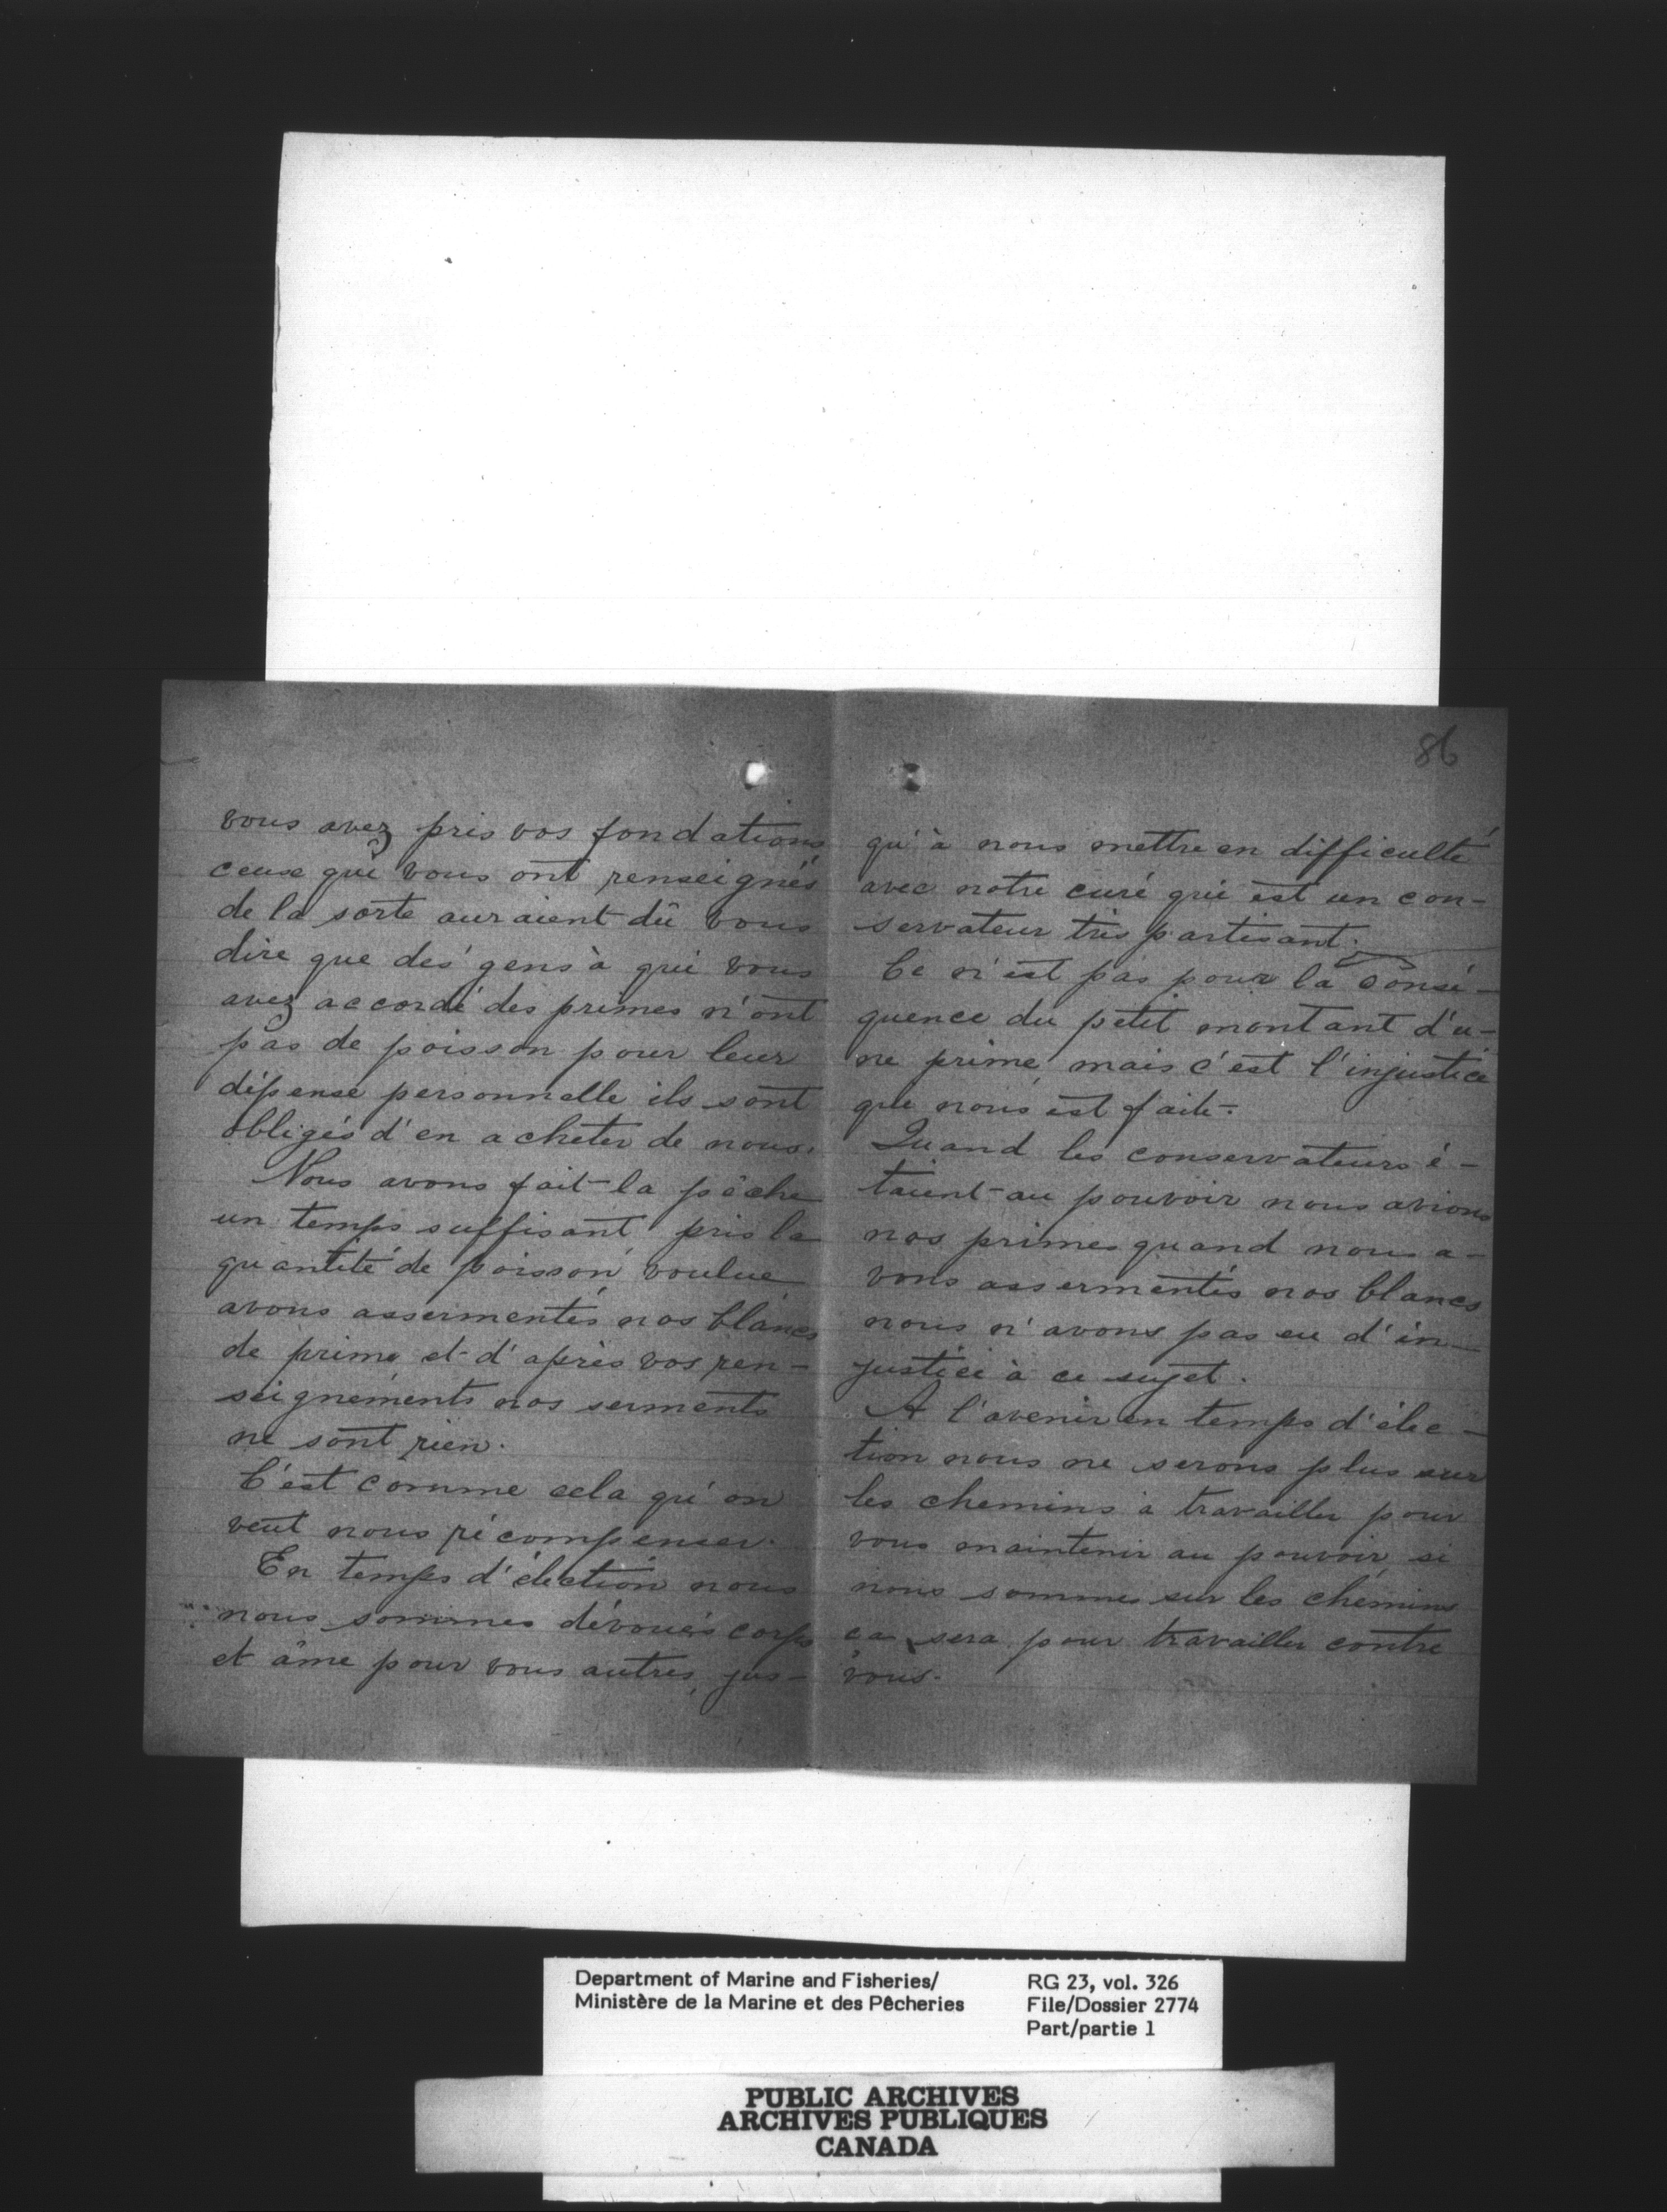 vous avez pris vos fondations
ceux qui vous ont renseignés
de la sorte auraient dû vous
dire que des gens à qui vous
avez accordé des primes n'ont
pas de poisson pour leur
dépense personnelle ils sont
obligés d'en acheter de nous.
Nous avons fait la pêche
un temps suffisant pris la
quantité de poisson voulue
avons assermentés nos blancs
de prime et d'après vos ren-
seignements nos serments
ne sont rien.
C'est comme cela qu'on
veut nous récompenser.
En temps d'élection nous
nous sommes dévoués corps
et âme pour vous autres, jus-
86
qu'à nous mettre en difficulté
avec notre curé qui est un con-
servateur très partisant.
Ce n'est pas pour la consé-
quence du petit montant d'u-
ne prime, mais c'est l'injustice
que nous est faite.
Quand les conservateurs é-
taient au pouvoir nous avions
nos primes quand nous a-
vons assermentés nos blancs
nous n'avons pas eu d'in-
justice à ce sujet.
A l'avenir en temps d'élec-
tion nous ne serons plus sur
les chemins à travailler pour
vous maintenir au pouvoir, si
nous sommes sur les chemins
ca sera pour travailler contre
vous.
Department of Marine and Fisheries/
Ministère de la Marine et des Pêcheries
RG 23, vol. 326
File/Dossier 2774
Part/partie 1
PUBLIC ARCHIVES
ARCHIVES PUBLIQUES
CANADA